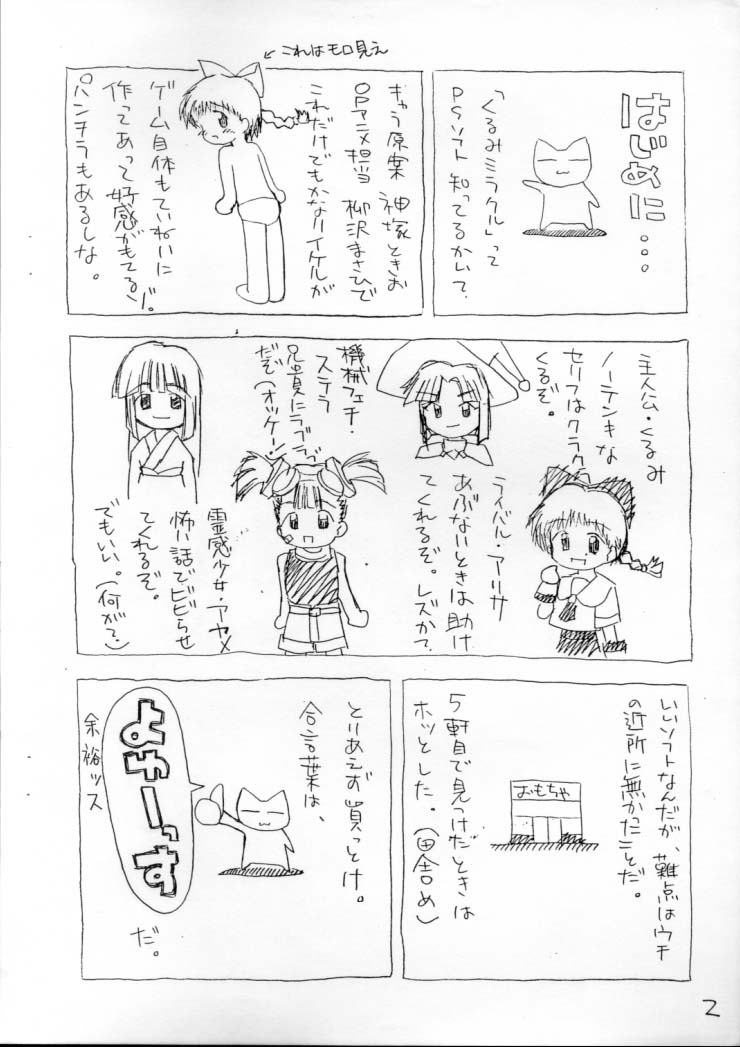 はじめに…
「くるみミラクル」って
PSソフト知ってるかい?
←これはモロ見え
キャラ原案 神塚ときお
OPアニメ担当 柳沢まさひで
これだけでもかなりイケルが
ゲーム自体もていねいに
作ってあって好感がもてるゾ。
パンチラもあるしな。
主人公・くるみ
ノーテンキな
セリフはクラクラ
くるぞ。
ライバル・アリサ
あぶないときは助け
てくれるぞ。レズか?
機械フェチ・
ステラ
兄貴にラブラブ
だぞ(オッケー)
霊感少女・アヤメ
怖い話でビビらせ
てくれるぞ。
でもいい。(何が?)
いいソフトなんだが、難点はウチ
の近所に無かったことだ。
おもちゃ
5軒目で見つけたときは
ホッとした。(田舎め)
とりあえず買っとけ。
合言葉は、
よゆーっす
余裕ッス
だ。
2